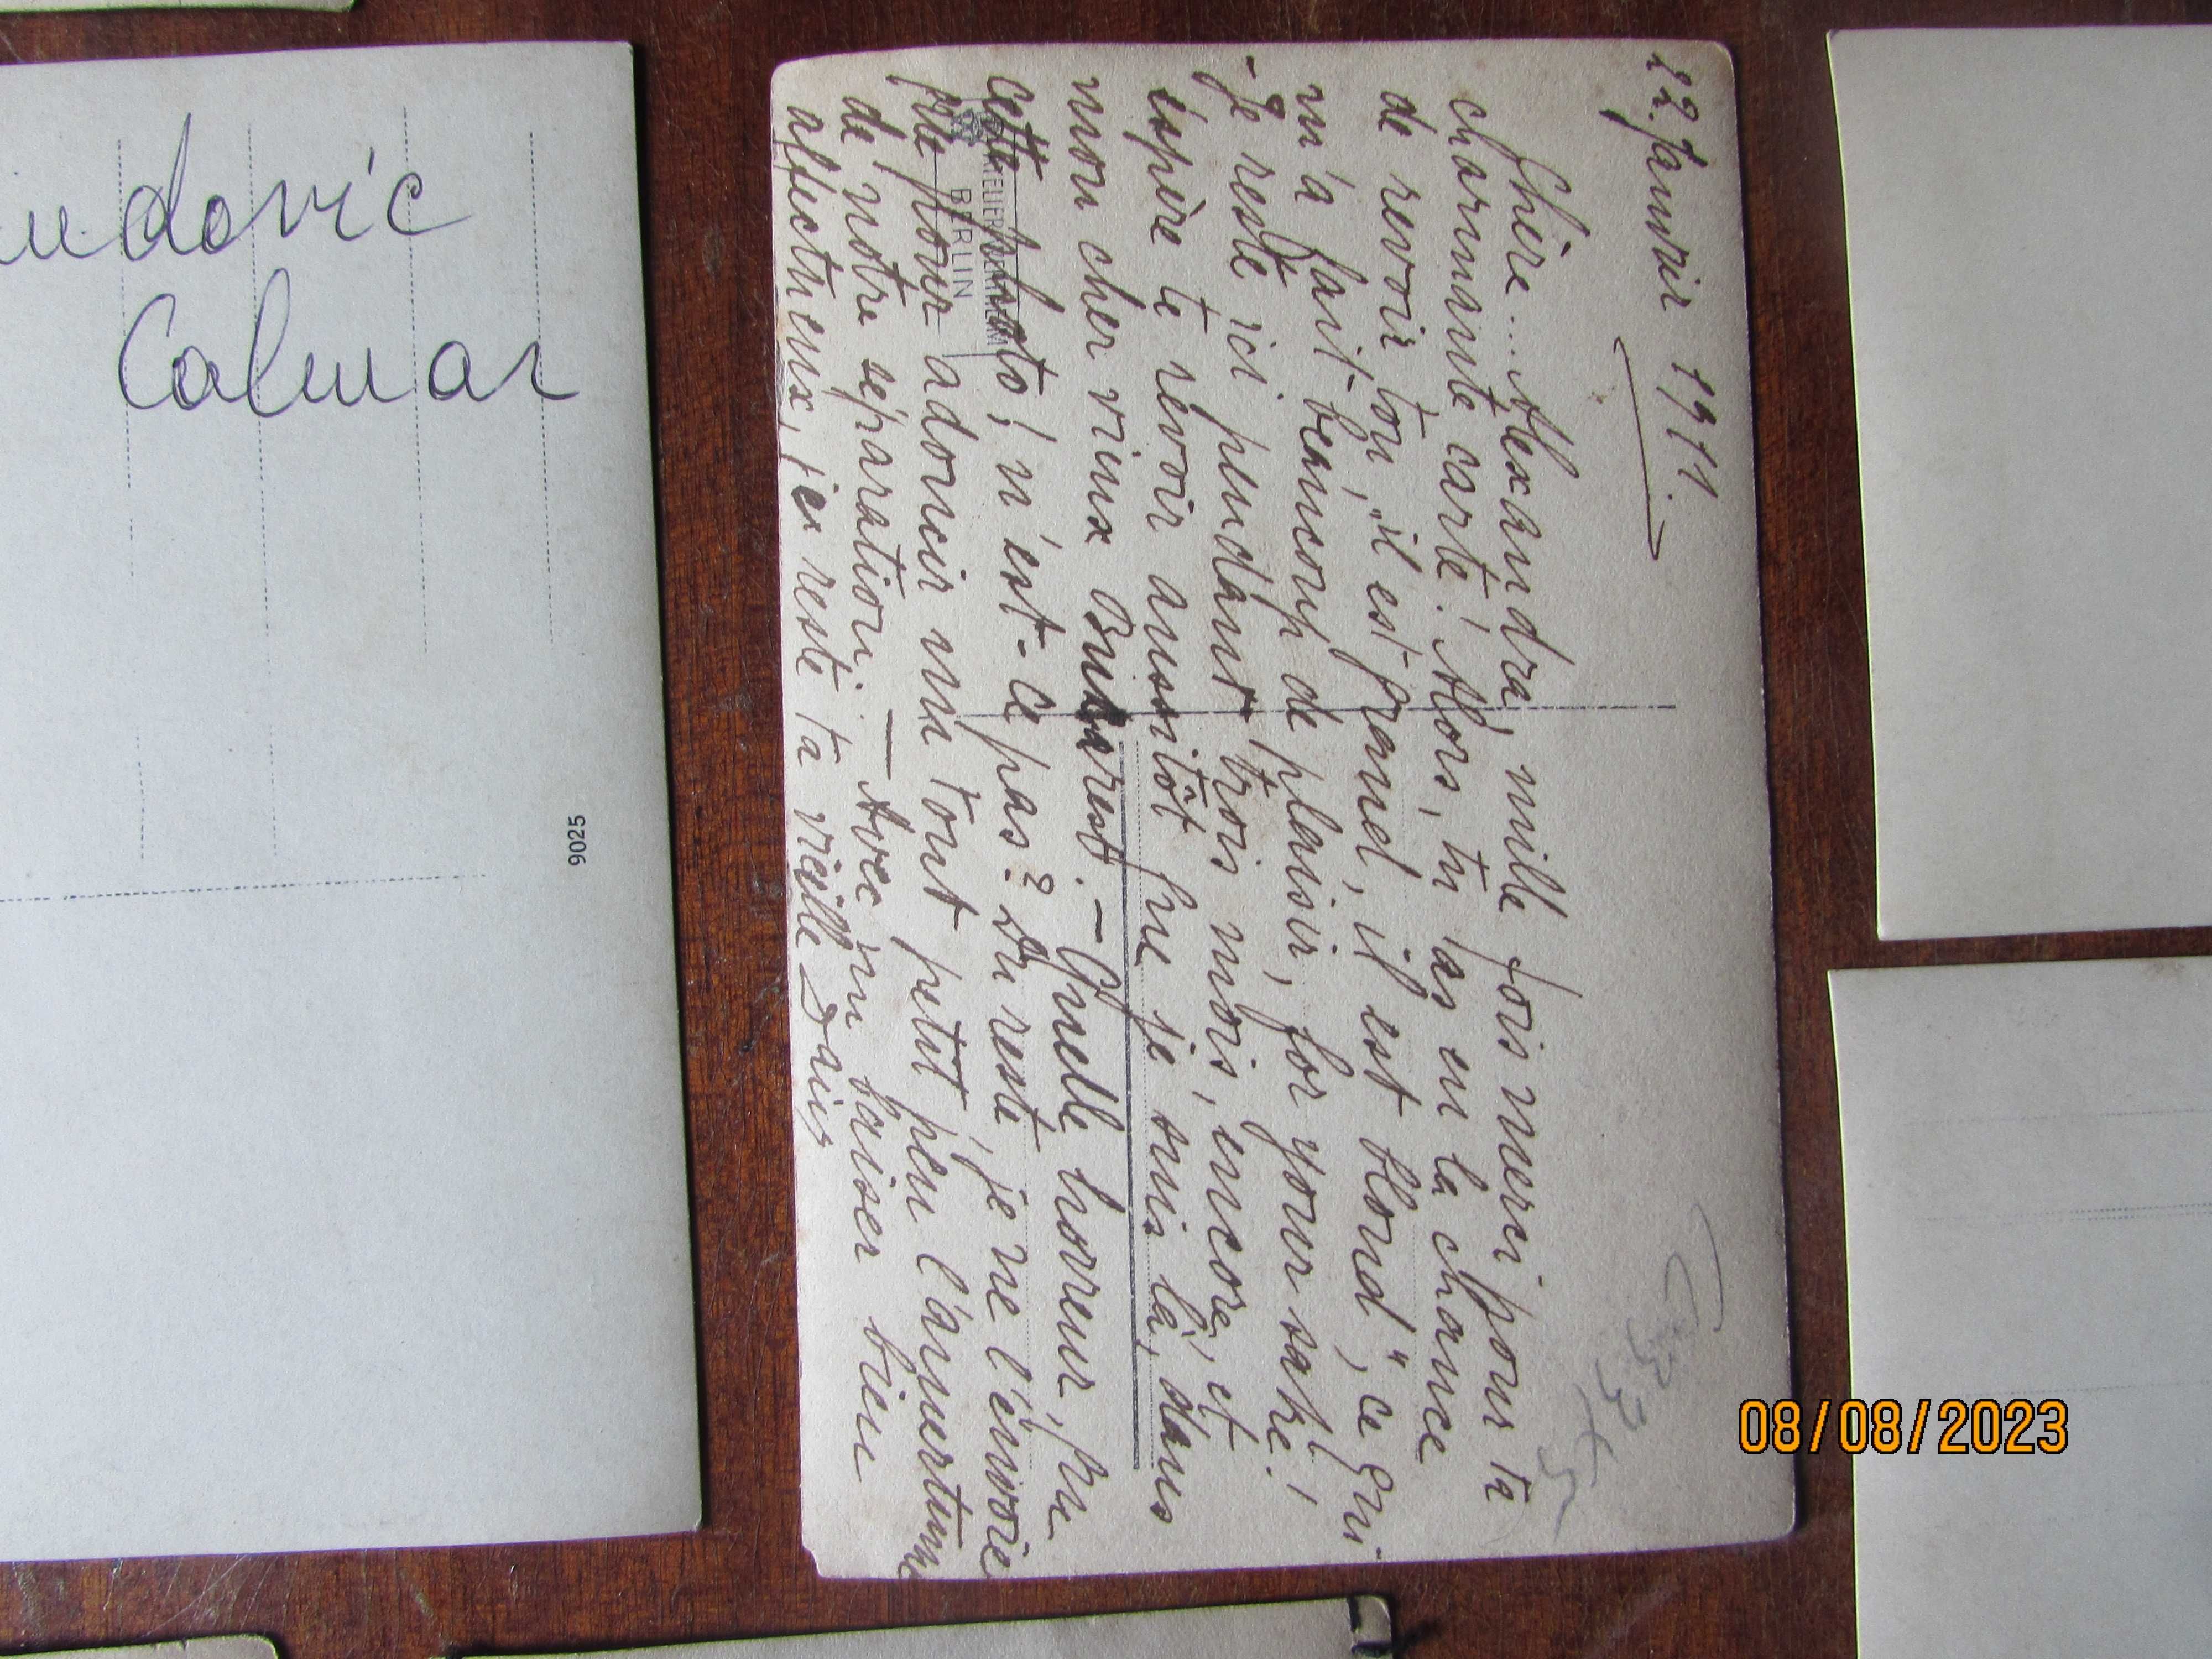 22. Janvier 1911.
Chère ... Alexandra, mille fois merci pour ta
charmante carte! Alors, tu as eu la chance
de revoir ton „il est grand, il est blond", ce qui
m'a fait beaucoup de plaisir, for your sake!
- Je reste ici pendant trois mois, encore, et
éspère te révoir aussitôt que je suis là, dans
mon cher vieux Bukarest. - Quelle horreur, que
cette photo; n'est-ce pas? Du reste, je ne l'envoie
que pour adoucir un tout petit peu l'amertume
de notre séparation. — Avec un baiser bien
affectueux, je reste ta vieille Daisy
ATELIER WERTHEIM
BERLIN
udovic
Colmar
9025
08/08/2023